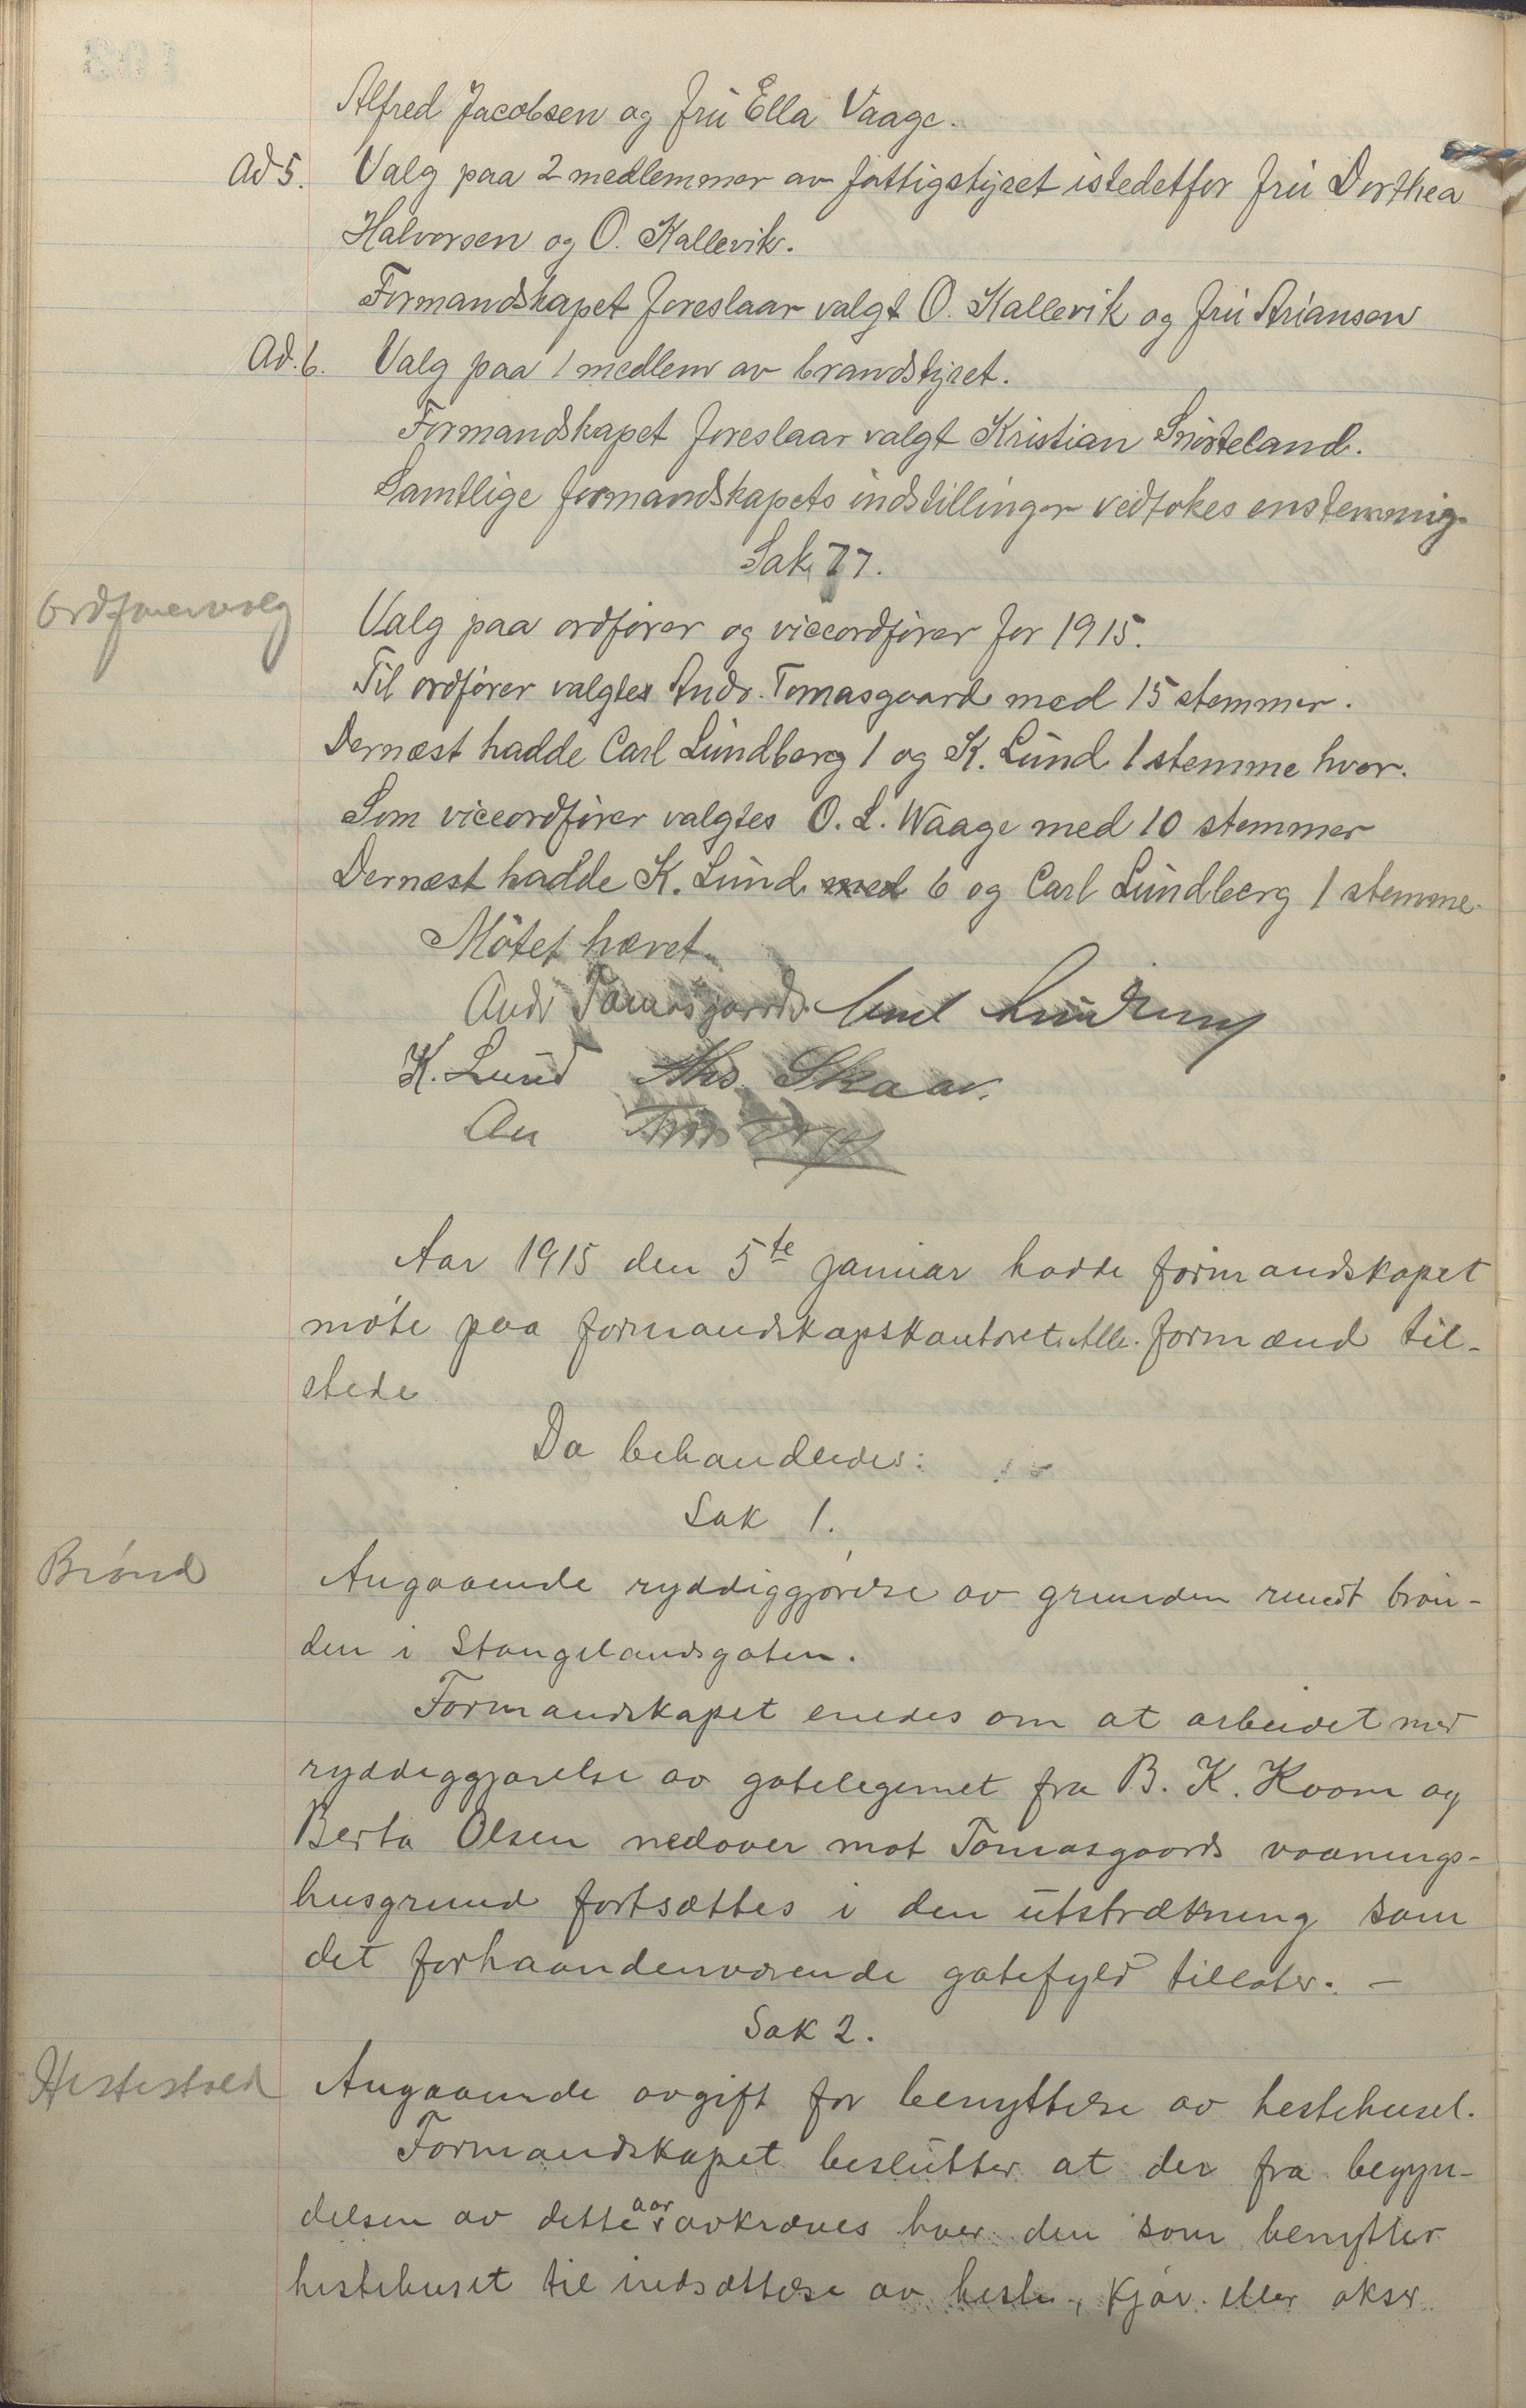 Alfred Jacobsen og fru Ella Vaage.
Ad 5. Valg paa 2 medlemmer av fattigstyret istedetfor fru Dorthea
Halvorsen og O. Kallevik.
Formandskapet foreslaar valgt O. Kallevik og fru Ariansen
Ad. 6. Valg paa 1 medlem av brandstyret.
Formandskapet foreslaar valgt Kristian Snørteland.
Samtlige formandskapets indstillinger vedtokes enstemmig.
Sak 77.
Ordførervalg
Valg paa ordfører og viceordfører for 1915.
Til ordfører valgtes Andr. Tomasgaard med 15 stemmer.
Dernæst hadde Carl Lundberg 1 og K. Lund 1 stemme hver.
Som viceordfører valgtes O. L. Waage med 10 stemmer
Dernæst hadde K. Lund med 6 og Carl Lundberg 1 stemme.
Møtet hævet.
Andr Tomasgaard. Carl Lundberg
K. Lund Ths. Skaar.
Aar 1915 den 5te januar hadde formandskapet
møte paa formandskapskontoret. Alle formænd til-
stede
Da behandledes:
Sak 1.
Brønd
Angaaende ryddiggjørelse av grunden rundt brøn-
den i Stangelandsgaten.
Formandskapet enedes om at arbeidet med
ryddiggjørelse av gatelegemet fra B. K. Kvam og
Berta Olsen nedover mot Tomasgaards vaanings-
husgrund fortsættes i den utstrækning som
det forhaandenværende gatefyld tillater. -
Sak 2.
Hestestald
Angaaende avgift for benyttelse av hestehuset.
Formandskapet beslutter at der fra begyn-
delsen av dette aar avkræves hver den som benytter
hestehuset til indsættelse av heste, kjør eller okser